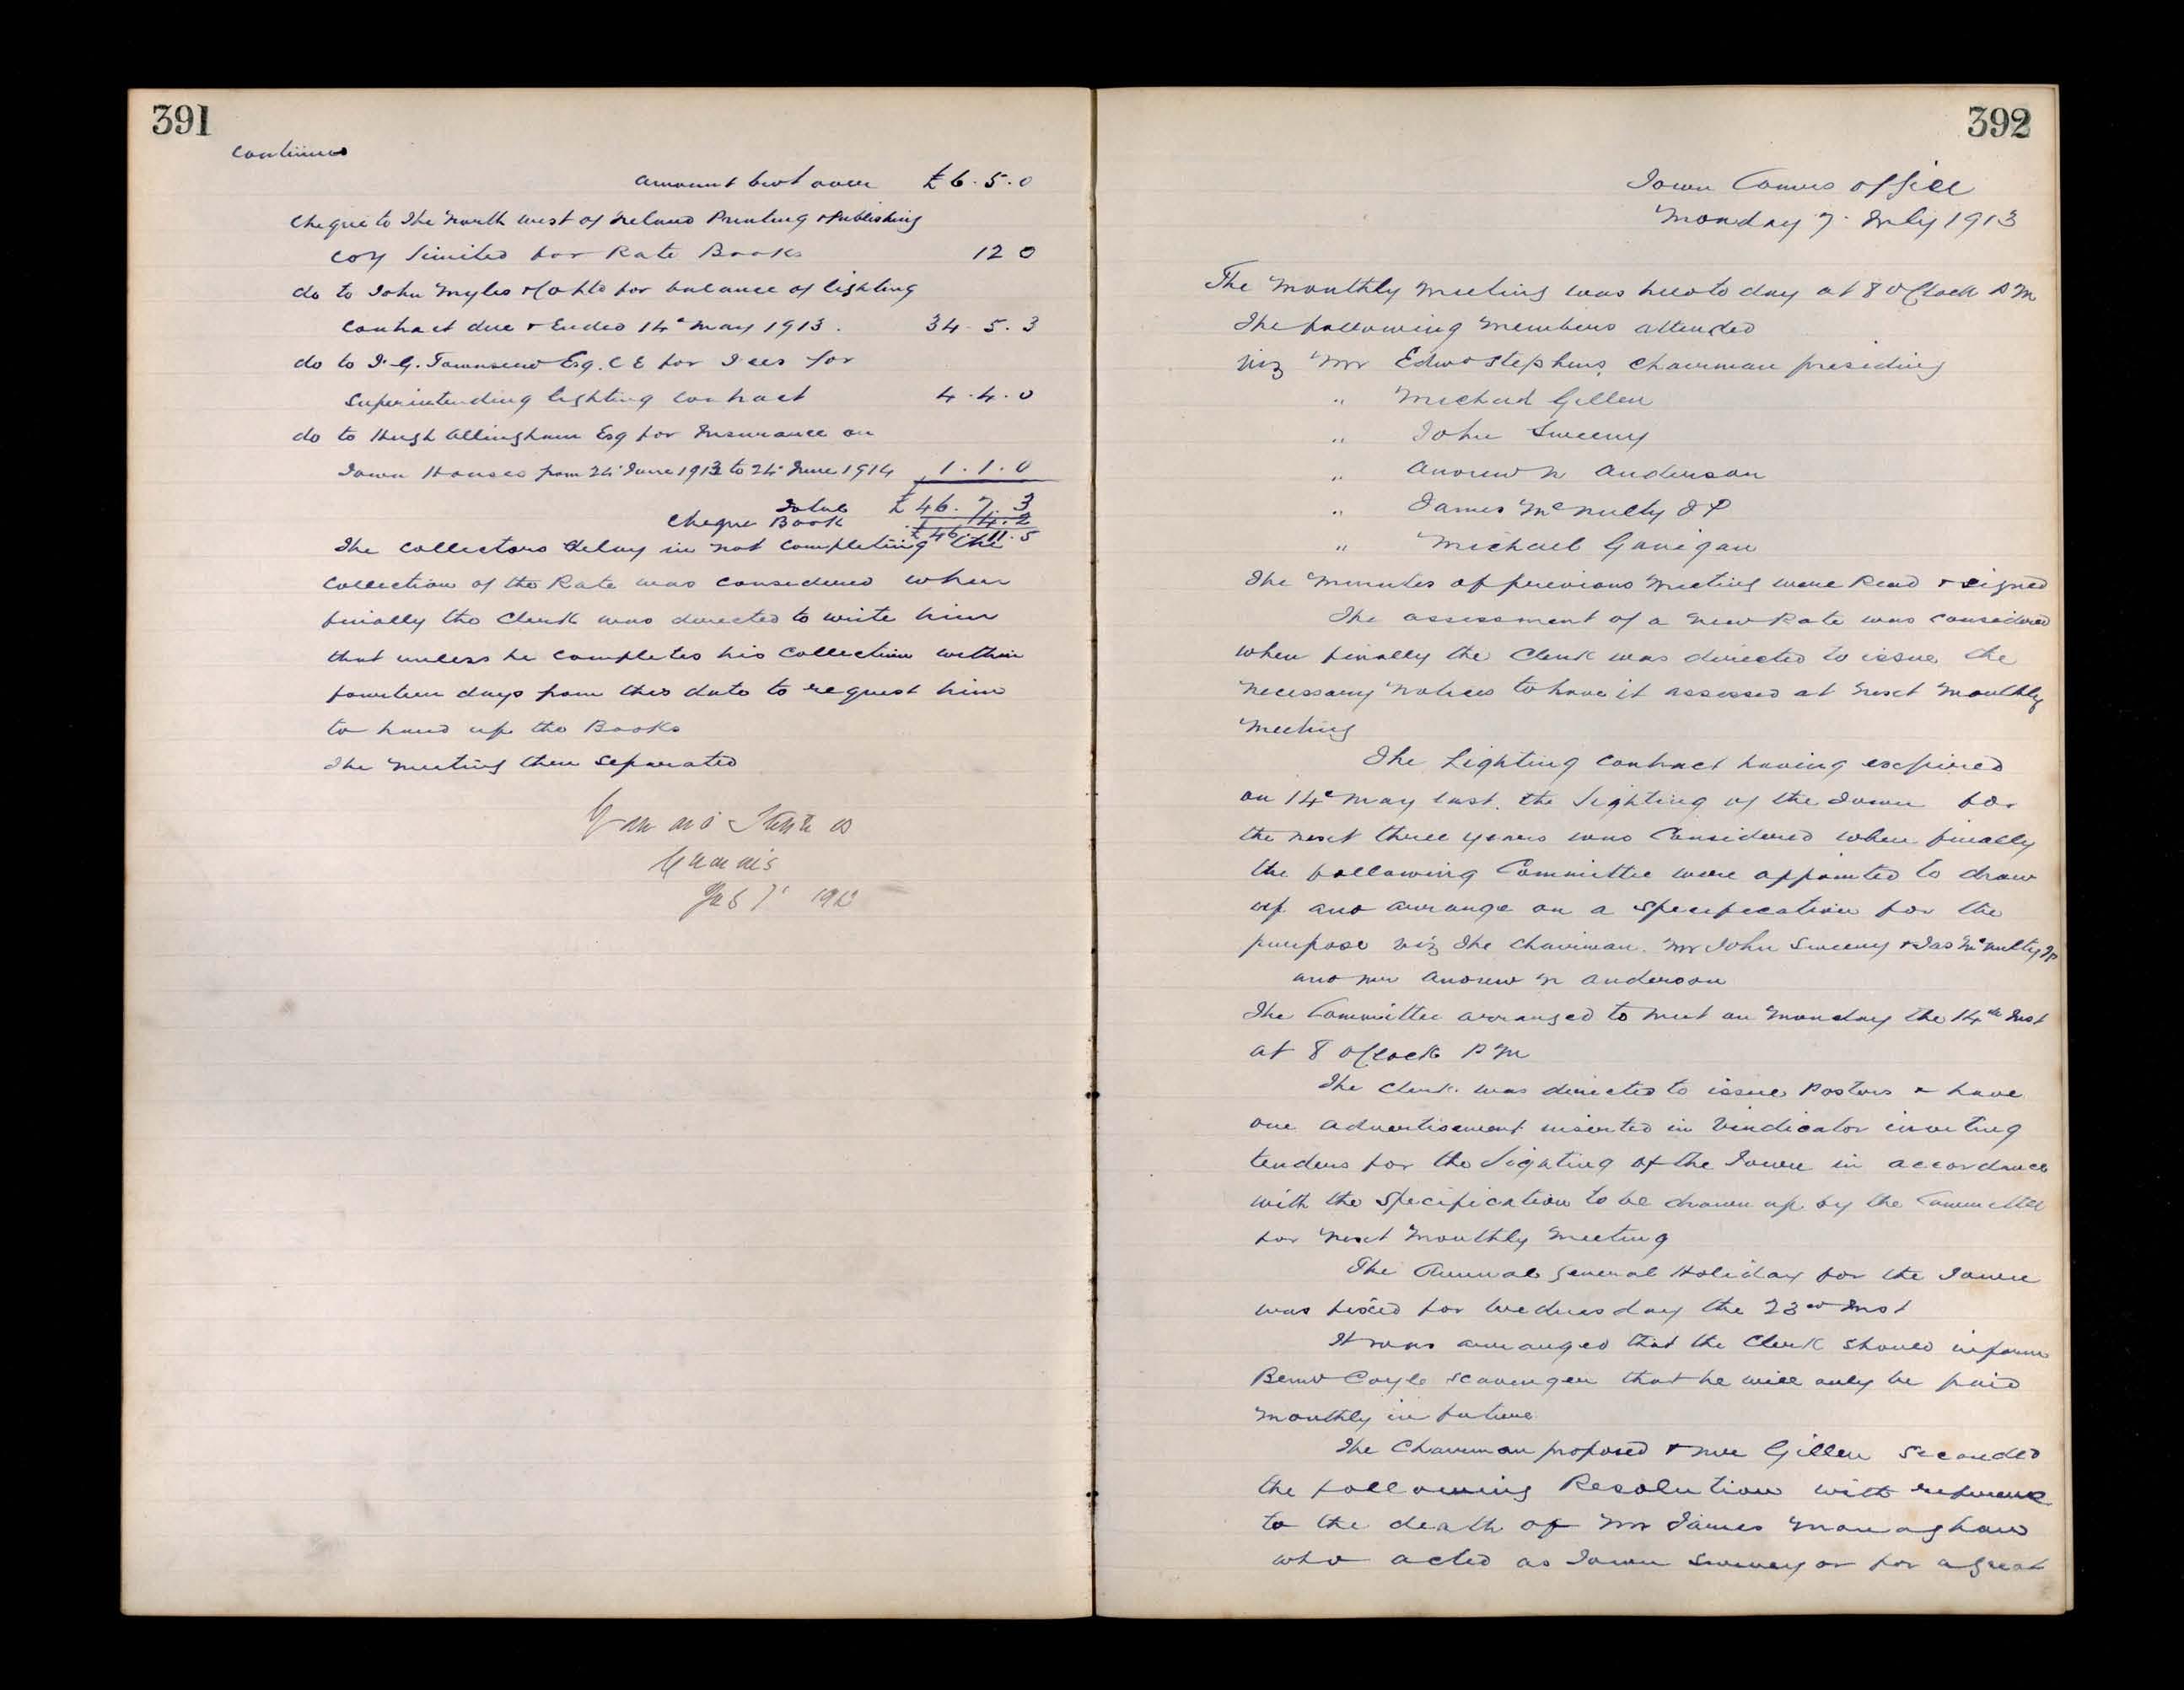 391
Continued
Amount brot over £6.5.0
Cheque to The North West of Ireland Printing & Publishing
Coy Limited for Rate Books 12 0
do to John Myles & Co Ltd for balance of lighting
Contract due & Ended 14th May 1913. 34. 5. 3
do to J. G. Townsend Esq. C E for Fees for
Superintending lighting Contract 4. 4. 0
do to Hugh Allingham Esq for Insurance on
Town Houses from 24th June 1913 to 24th June 1914 1. 1. 0
Total £46. 7. 3
Cheque Book 4. 2
£46. 11. 5
The Collectors delay in not Completing the
Collection of the Rate was considered when
finally the Clerk was directed to write him
that unless he completes his Collection within
fourteen days from this date to request him
to hand up the Books
The Meeting then Separated
392
Town Comrs office
Monday 7. July 1913
The Monthly Meeting was held to day at 8 oClock P M
The following Members attended
viz Mr Edwd Stephens. Chairman presiding
" Michael Gillen
" John Sweeny
" Andrew N Anderson
" James McNulty J P
" Michael Gavigan
The Minutes of previous Meeting were Read & signed
The assessment of a New Rate was considered
when finally the Clerk was directed to issue the
necessary Notices to have it assessed at next Monthly
Meeting
The Lighting Contract having expired
on 14th May last. the lighting of the Town for
the next three years was Considered when finally
the following Committee were appointed to draw
up and arrange on a Specification for the
purpose viz The Chairman. Mr John Sweeny & Jas McNulty JP
and Mr Andrew N Anderson
The Committee arranged to meet on Monday the 14th Inst
at 8 oClock P M
The Clerk was directed to issue Posters & have
one advertisement inserted in Vindicator inviting
tenders for the lighting of the Town in accordance
with the Specification to be drawn up by the Committee
for next Monthly Meeting
The Annual General Holiday for the Town
was fixed for Wednesday the 23rd Inst
It was arranged that the Clerk should inform
Bernd Coyle scavenger that he will only be paid
Monthly in future
The Chairman proposed & Mr Gillen Seconded
the following Resolution with reference
to the death of Mr James Monaghan
who acted as Town Surveyor for a great